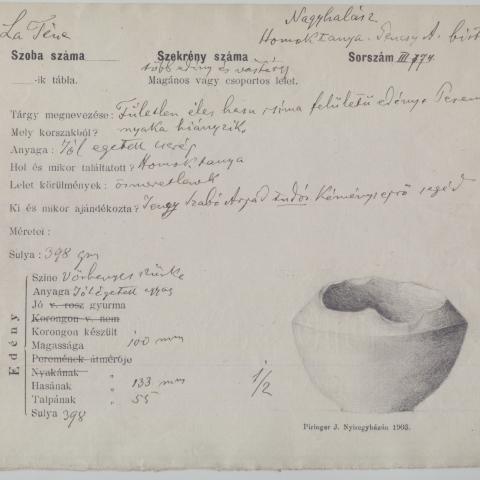 La Téne
Nagyhalász
Homoktanya. Jencsy A. birt
Szoba száma
Szekrény száma
Sorszám III. 774.
több edény és vastárgy
-ik tábla.
Magános vagy csoportos lelet.
Tárgy megnevezése: Fületlen éles hasu sima felületü edény. Perem
Mely korszakból? nyaka hiányzik.
Anyaga: Jól égetett cserép
Hol és mikor találtatott? Homoktanya
Lelet körülmények: ösmeretlenek
Ki és mikor ajándékozta? Szabó Árpád kéményseprő segéd
Méretei:
Sulya: 398 gm
Edény
Szine Vörhenyes szürke
Anyaga Jól égetett agyag
Jó v. rosz gyurma
Korongon v. nem
Korongon készült
Magassága 100 mm
Peremének átmérője
Nyakának "
Hasának " 133 mm
Talpának " 55
Sulya 398
1/2
Piringer J. Nyiregyházán 1903.